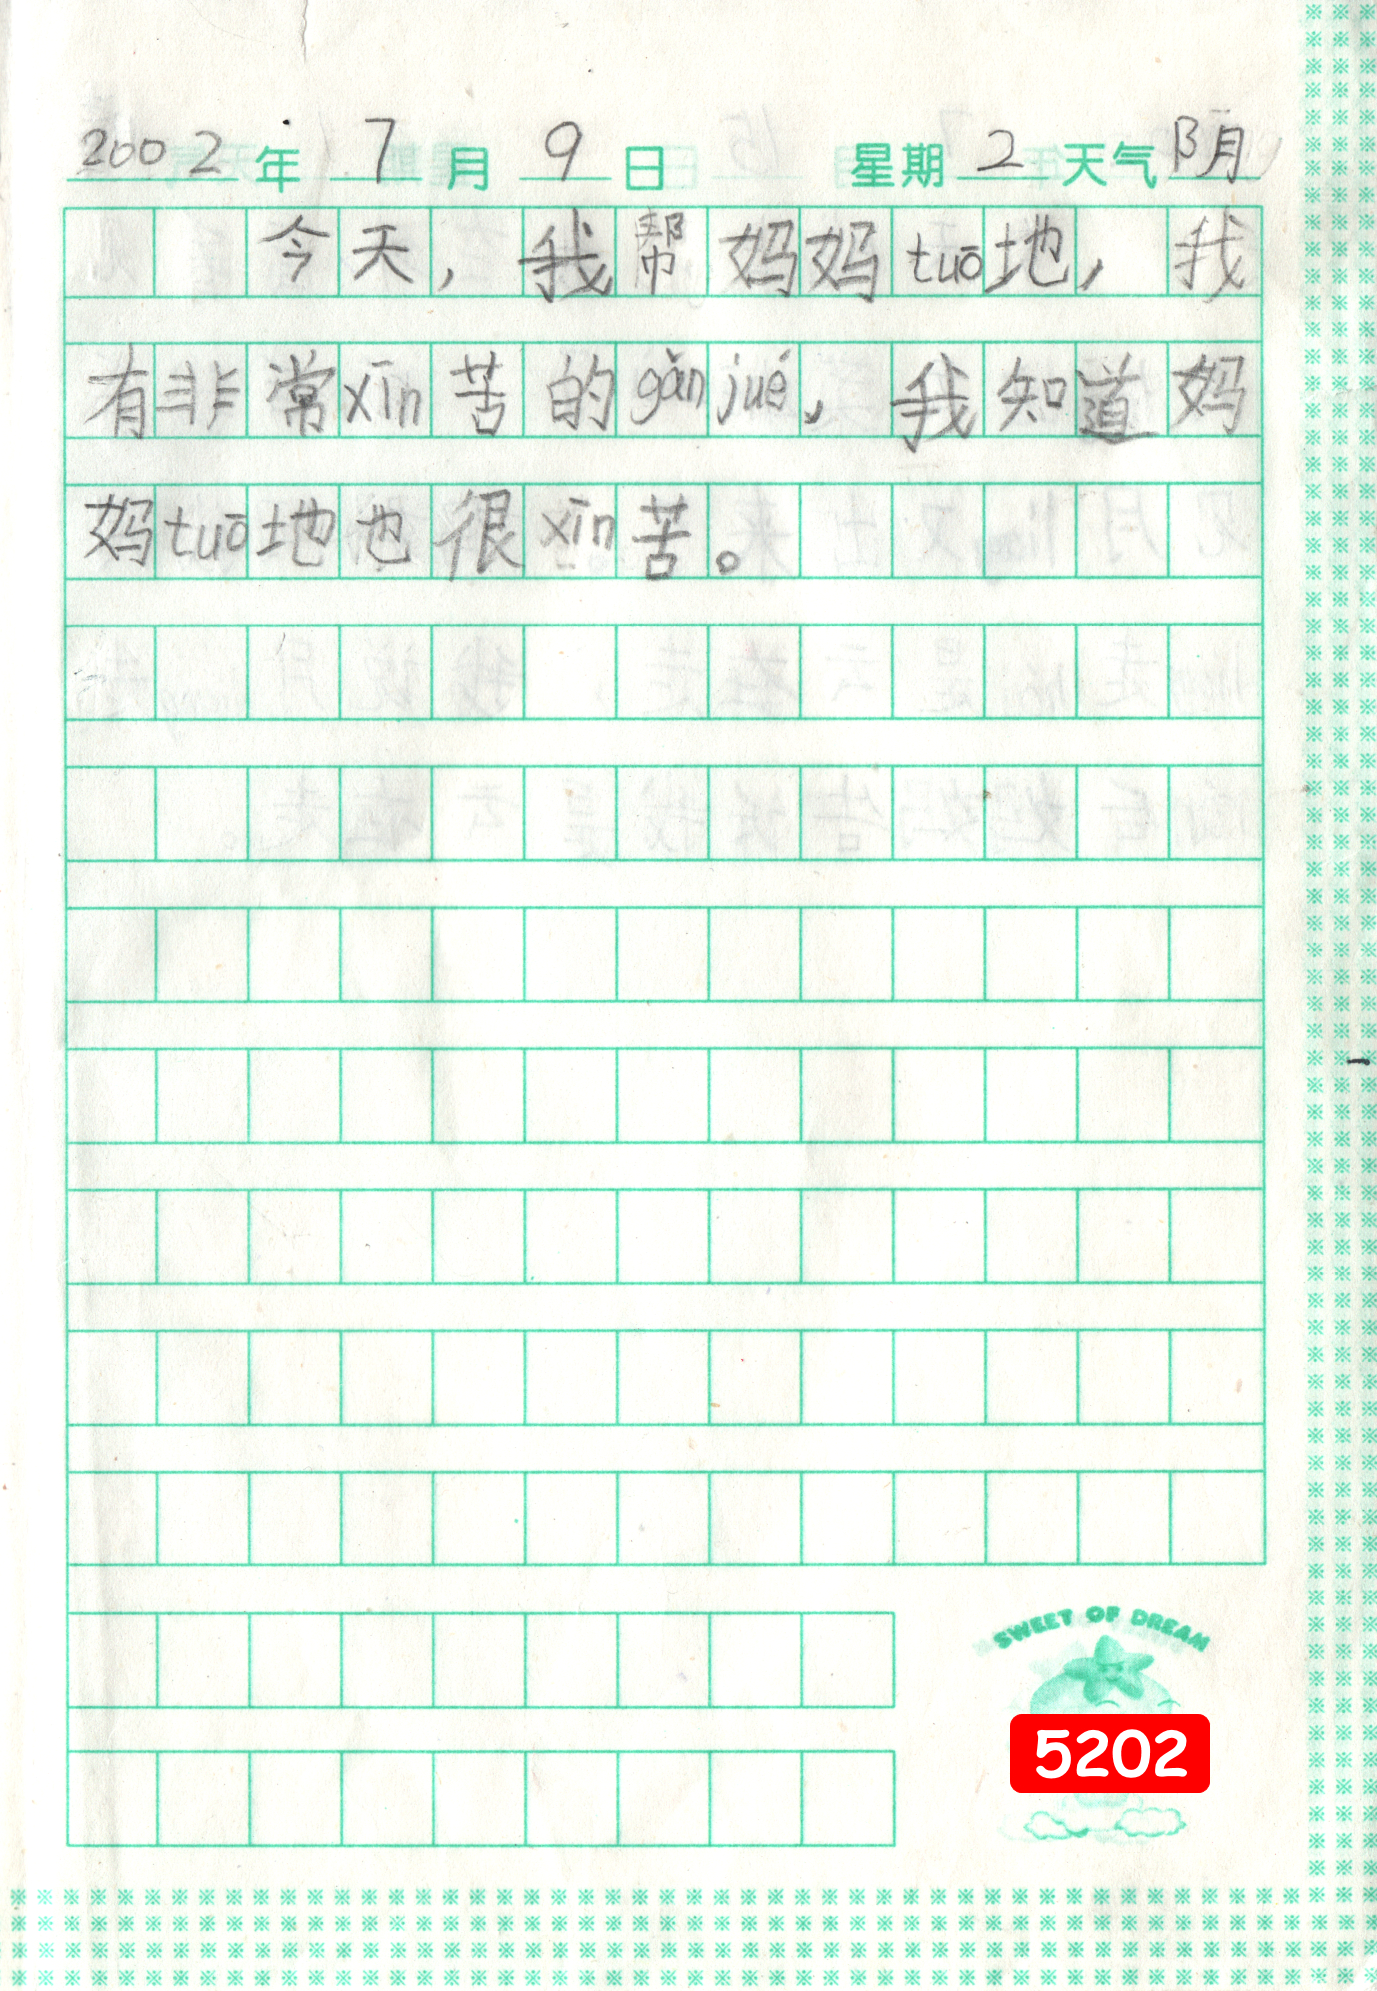 2002年7月9日 星期2天气阴
今天，我帮妈妈tuō地，我
有非常xīn苦的gǎnjué，我知道妈
妈tuō地也很xīn苦。
SWEET OF DREAM
5202